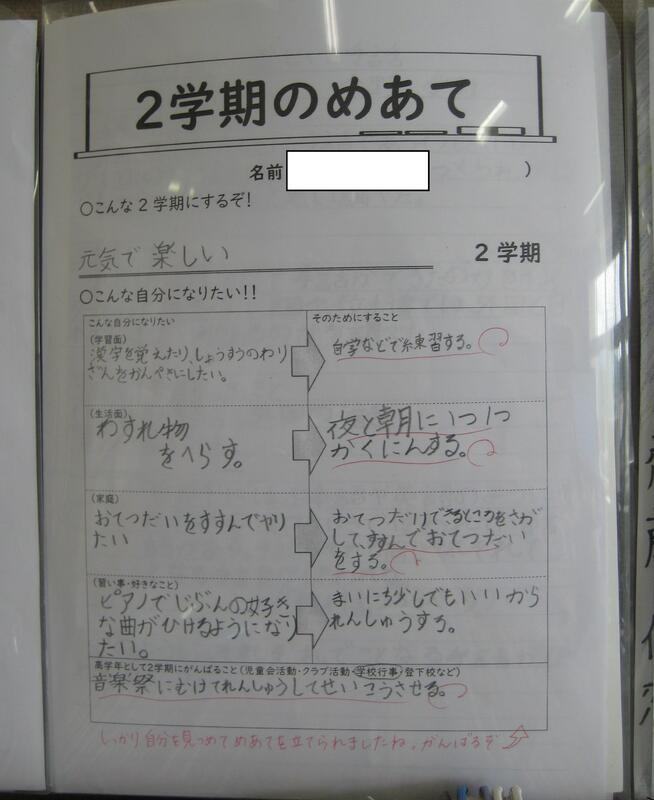 2学期のめあて
名前 )
○こんな2学期にするぞ!
元気で楽しい 2学期
○こんな自分になりたい!!
こんな自分になりたい
そのためにすること
(学習面)
漢字を覚えたり、しょうすうのわり
ざんをかんぺきにしたい。
自学などで練習する。
(生活面)
わすれ物
をへらす。
夜と朝に1つ1つ
かくにんする。
(家庭)
おてつだいをすすんでやり
たい
おてつだいできるところをさが
して、すすんでおてつだい
をする。
(習い事・好きなこと)
ピアノでじぶんの好き
な曲がひけるようになり
たい。
まいにち少しでもいいから
れんしゅうする。
高学年として2学期にがんばること(児童会活動・クラブ活動・学校行事・登下校など)
音楽祭にむけてれんしゅうしてせいこうさせる。
しっかり自分を見つめてめあてを立てられましたね。がんばるぞ